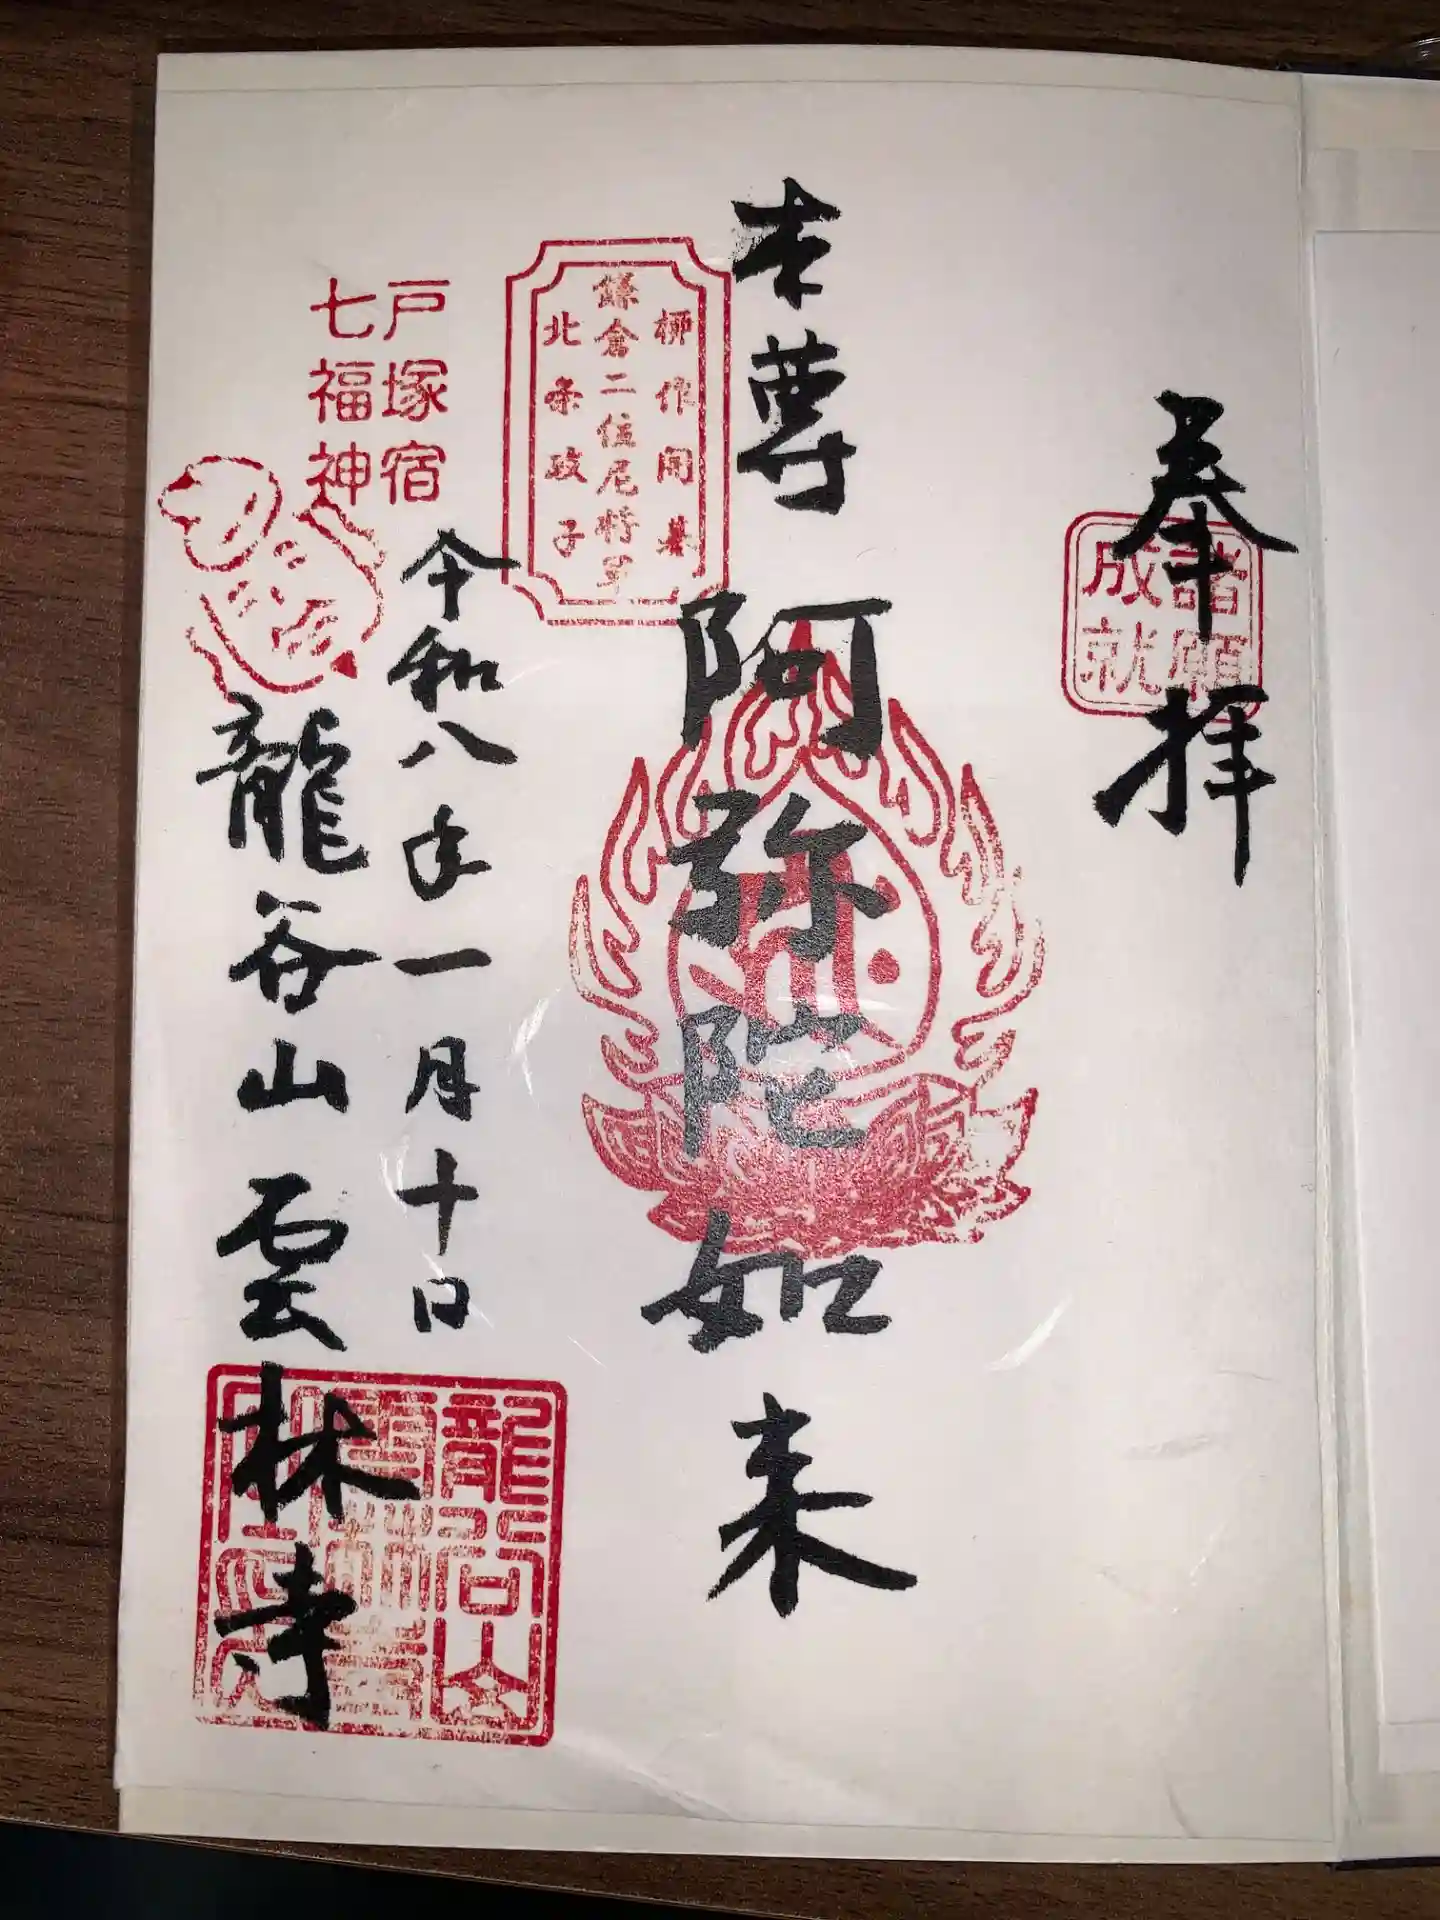 奉拝
諸願
成就
本尊
阿弥陀如来
柳作開基
鎌倉二位尼将军
北条政子
令和八年一月十日
戸塚宿
七福神
龍谷山雲林寺
龍谷山
雲林寺